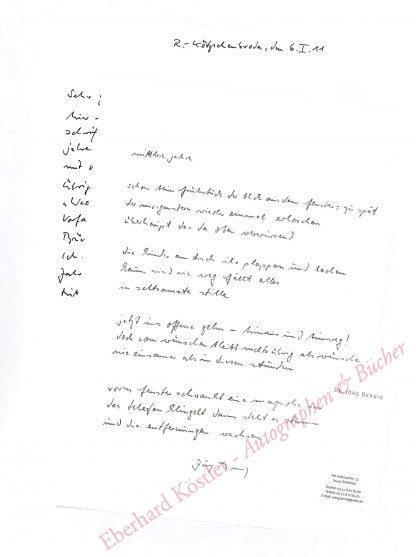 R.-Kötzschenbroda, den 6. I. 11
Sehr
hier-
schrif
jahre
mit
übrig
etwa
Verfa
Ich
Jahr
mit
mittlere jahre
schon beim frühstück der blick aus dem fenster: zu spät
der morgenstern wieder einmal erloschen
überhaupt das da oben verwirrend
die kinder am tisch ihr plappern und lachen
kaum sind sie weg fällt alles
in seltsamste stille
jetzt ins offene gehn – hinaus und hinweg!
doch vom wünschen bleibt nichts übrig als wünsche
nie einsamer als in diesen stunden
vorm fenster schwankt eine magnolie
das telefon klingelt dann steht es stumm
und die entfernungen wachsen
DR. JÖRG BERNIG
Eberhard Köstler - Autographen & Bücher